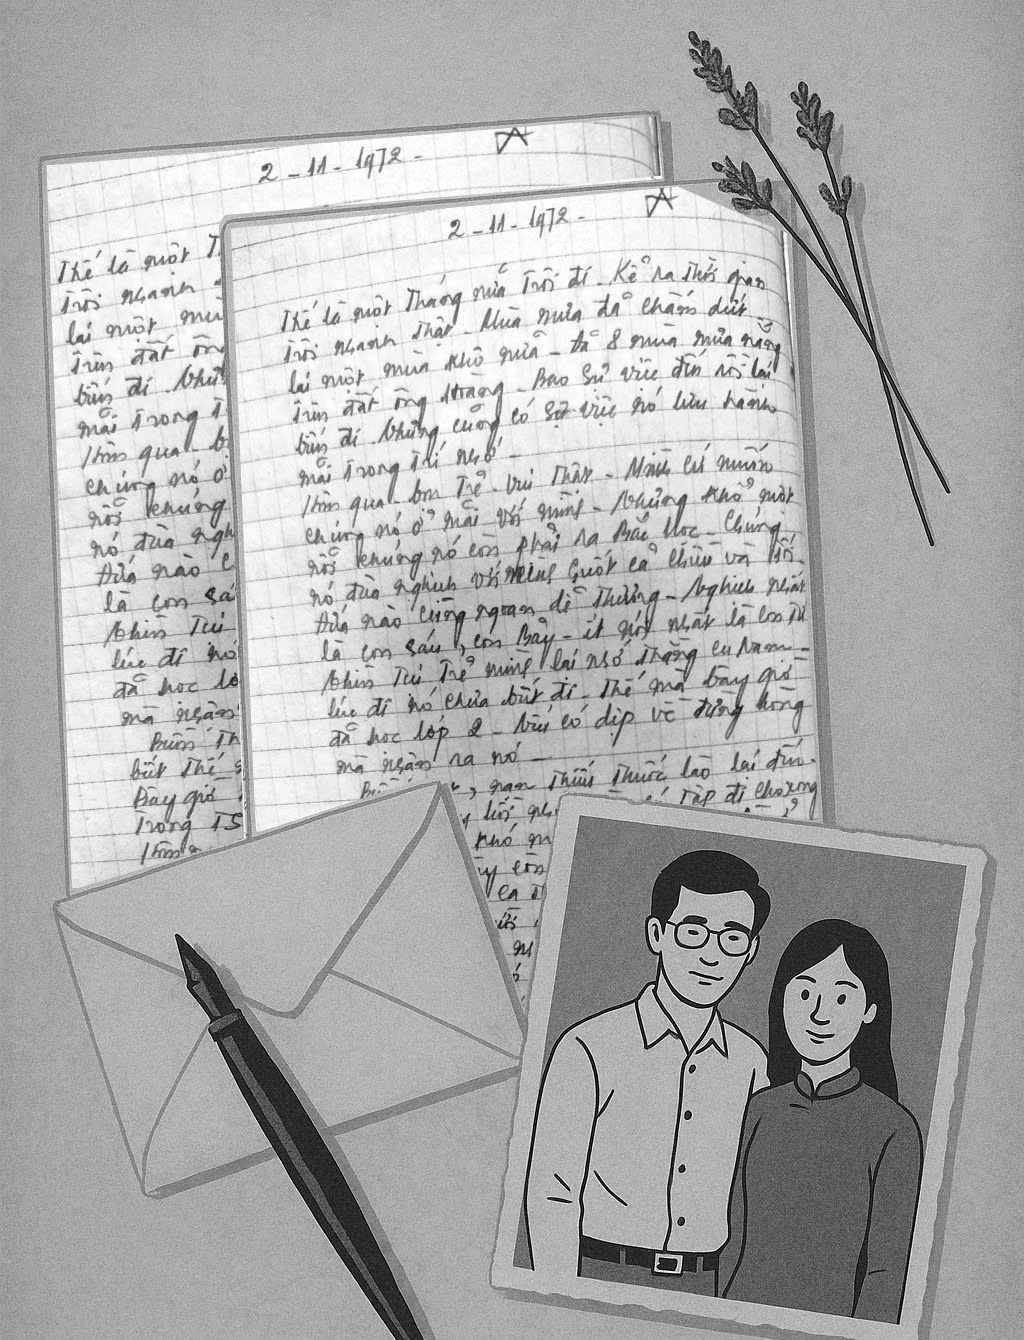 2-11-1972-
Thế là một T
Trôi nhanh
lại một mù
Trên đất ông
biến đi. Nhữ
mãi trong T
Hôm qua
chúng nó ở
nỗi chúng
nó đùa ngh
Đứa nào c
là con sá
Nhìn Tụi
lúc đi nó
đã học lớ
mà nhận
Buồn Th
bút thế
Bây giờ
Trong TS
Hôm
2-11-1972-
Thế là một Tháng nữa Trôi đi. Kể ra Thời gian
Trôi nhanh Thật. Mùa mưa đã chấm dứt
lại một mùa khô nữa - đã 8 mùa mưa nắng
Trên đất ông Hoàng. Bao sự việc đến rồi lại
biến đi. Nhưng cũng có sự việc nó lưu hành
mãi trong Trí nhớ -
Hôm qua bọn Trẻ vui Thật. Mình cứ muốn
chúng nó ở mãi với mình. Nhưng khổ một
nỗi chúng nó còn phải ra Bắc học. Chúng
nó đùa nghịch với mình suốt cả chiều và Tối
Đứa nào cũng ngoan dễ Thương. Nghịch nhất
là con sáu, con Bảy - ít nói nhất là con Tư
Nhìn Tụi Trẻ mình lại nhớ Thằng cu Nam
lúc đi nó chưa biết đi. Thế mà bây giờ
đã học lớp 2. Nếu có dịp về đừng hòng
mà nhận ra nó -
nạn Thiếu Thuốc lào lại đến.
Tập đi Choang
khó
còn